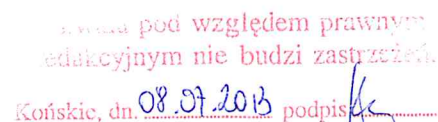 pod względem prawnym
redakcyjnym nie budzi zastrzeżeń.
Końskie, dn. 08.07.2013 podpis